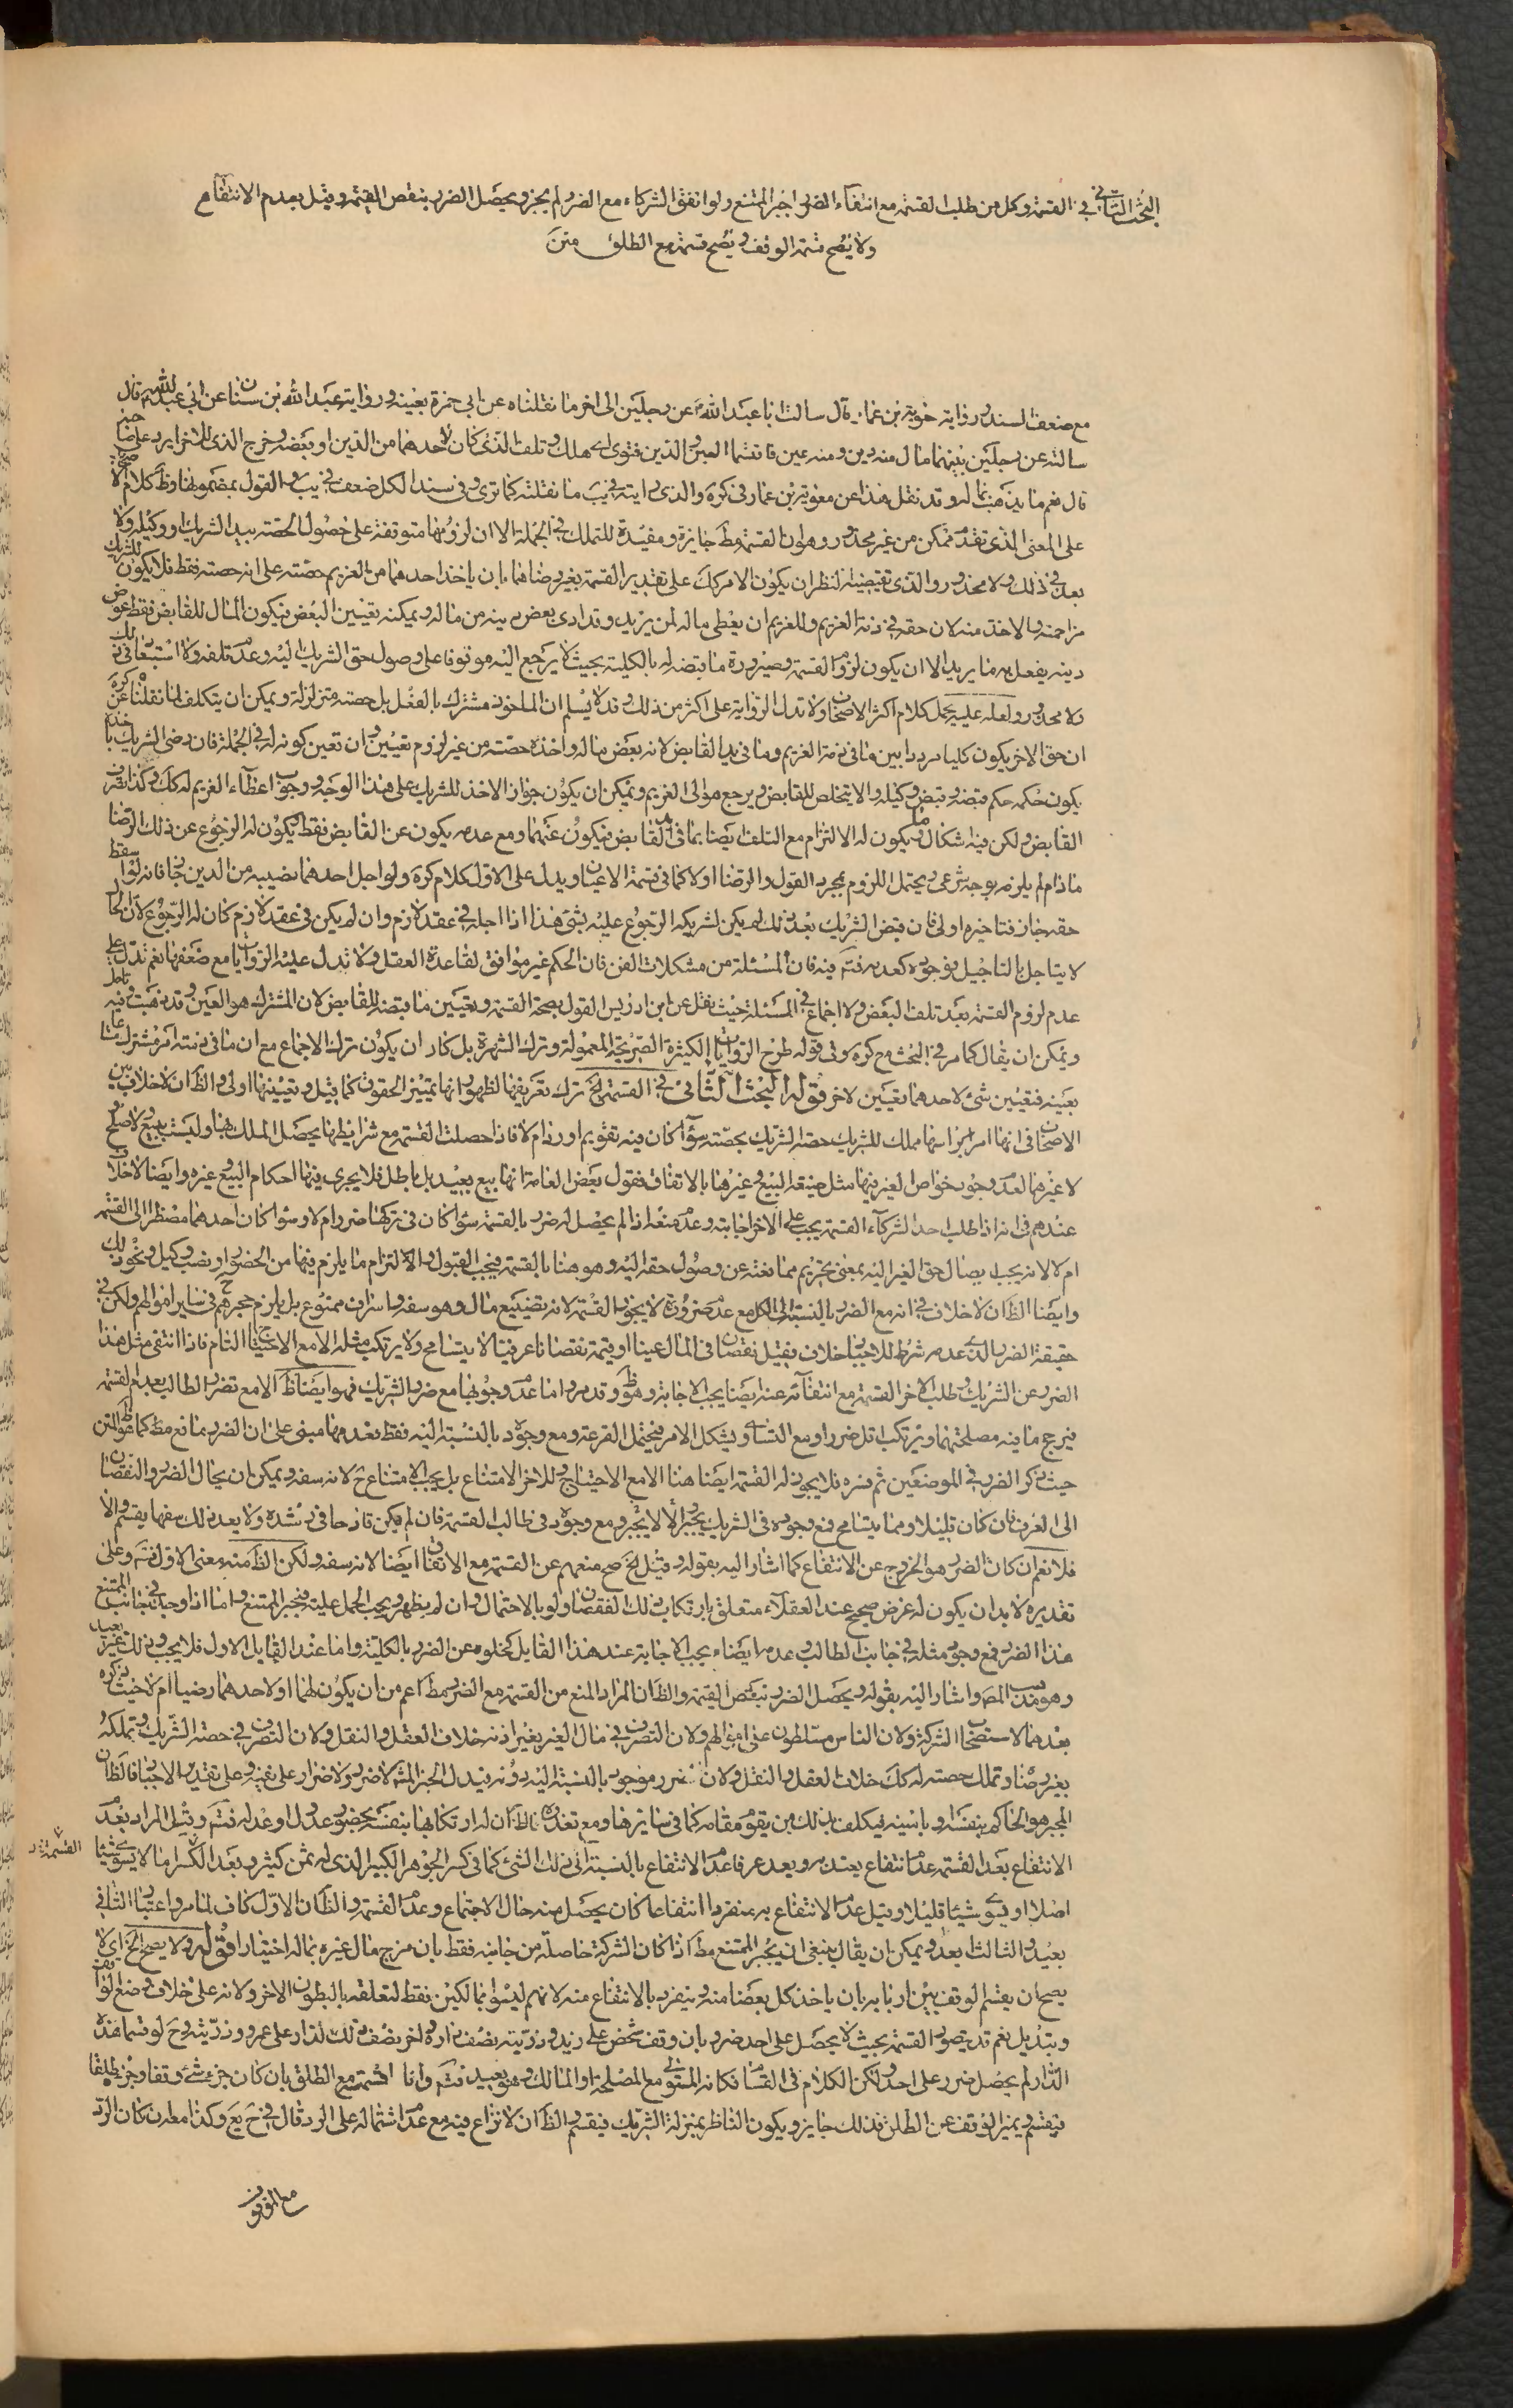 البحث الثاني في القسمة وكل من طلب القسمة مع انتفاء الضرر اجبر الممتنع ولو اتفق الشركاء مع الضرر لم يجز ويحصل الضرر بنقص القيمة وقيل بعدم الانتفاع
ولا يصح قسمة الوقف ويصح قسمته مع الطلق متن
مع ضعف السند ورواية معوية بن عمار قال سالت ابا عبد الله عن رجلين الى اخر ما نقلناه عن ابي حمزة بعينه ورواية عبد الله بن سنان عن ابي عبد الله قال
سالته عن رجلين بينهما مال منه دين ومنه عين فاقتسما العين والدين فتوى اى هلك وتلف الذى كان لاحدهما من الدين او بعضه وخرج الذى للاخر ايرد على صاحبه
قال نعم ما يذهب بماله وقد نقل هذا عن معوية بن عمار فى كره والذى رايته فى يب ما نقلته كما ترى وفى سند الكل ضعف
على المعنى الذى تقدم ممكن من غير محذور وهو ان القسمة مط جايزة ومفيدة للتملك في الجملة الا ان لزومها متوقفة على حصول الحصة بيد الشريك او وكيله ولا
بعد في ذلك ولا محذور والذى تقتضيه النظر ان يكون الامر كك على تقدير القسمة بغير رضاهما بان ياخذ احدهما من الغريم حصته على انه حصته فقط فلا يكون للشريك
مزاحمته والاخذ منه لان حقه في ذمة الغريم وللغريم ان يعطى ماله لمن يريد وقد ادى بعض دينه من ماله ويمكنه تعيين البعض فيكون المال للقابض فقط عوض
دينه يفعل به ما يريد الا ان يكون لزوم القسمة وصيرورة ما قبضه له بالكلية بحيث لا يرجع اليه موقوفا على وصول حق الشريك اليه وعدم تلفه ولا استبعاد في ذلك
ولا محذور ولعله عليه يحمل كلام اكثر الاصحاب ولا تدل الرواية على اكثر من ذلك وقد لا يسلم ان الماخوذ مشترك بالفعل بل حصته متزلزلة ويمكن ان يتكلف لما نقلناه عن كره
ان حق الاخر يكون كليا مرددا بين ما فى ذمة الغريم وما فى يد القابض لانه بعض ماله واخذه حصته من غير لزوم تعيين وان تعين كونه له في الجملة فان رضى الشريك باخذه
يكون حكمه حكم قبضه وقبض وكيله والا يتخلص للقابض ويرجع هو الى الغريم ويمكن ان يكون جواز الاخذ للشريك على هذا الوجه ووجوب اعطاء الغريم له كك وكذا
القابض ولكن فيه اشكال ويكون له الالتزام مع التلف ايضا بما فى يد القابض فيكون عنهما ومع عدمه يكون عن القابض فقط فيكون له الرجوع عن ذلك الرضا
ما دام لم يلزمه بوجه شرعى ويحتمل اللزوم بمجرد القول والرضا اولا كما فى قسمة الاعيان ويدل على الاول كلام كره ولو اجل احدهما نصيبه من الدين جاز فانه لو اسقط
حقه جاز فتاخيره اولى فان قبض الشريك بعد ذلك لم يكن لشريكه الرجوع عليه بشئ هذا اذا اجله في عقد لازم وان لم يكن فى عقد لازم كان له الرجوع لان الحال
لا يتاجل بالتاجيل فوجوده كعدمه فتم فيه فان المسئلة من مشكلات الفن فان الحكم غير موافق لقاعدة العقل ولا تدل عليه الروايات مع ضعفها نعم تدل على
عدم لزوم القسمة بعد تلف البعض ولا اجماع في المسئلة حيث نقل عن ابن ادريس القول بصحة القسمة وتعيين ما قبضه للقابض لان المشترك هو العين وقد ذهبت وفيه تامل
ويمكن ان يقال كما مر في البحث مع كره وفى قوله طرح الروايات الكثيرة الصريحة المعمولة وترك الشهرة بل كاد ان يكون ترك الاجماع مع ان ما فى ذمته امر مشترك
بعينه فتعيين شئ لاحدهما تعيين لاخر قوله البحث الثانى فى القسمة الخ ترك تعريفها لظهور انها تمييز الحقوق كما قيل وتعيينها اولى والظ ان لا خلاف بين
الاصحاب فى انها امر براسها يملك للشريك حصة الشريك بحصته سواء كان فيه تقويم او رد ام لا فاذا حصلت القسمة مع شرايطها يحصل الملك بها وليست ببيع لا صلح
لا غيرهما لعدم وجود خواص الغير فيها مثل صيغة البيع وغيرها بالاتفاق فقول بعض العامة انها بيع بعيد بل باطل فلا يجرى فيها احكام البيع وغيره وايضا لا خلاف
عندهم فى انه اذا طلب احد الشركاء القسمة يجب على الاخر اجابته وعدم منعه اذا لم يحصل له ضرر بالقسمة سواء كان فى تركها ضرر ام لا وسواء كان احدهما مضطرا الى القسمة
ام لا لانه يجب ايصال حق الغير اليه بمعنى تحريم ممانعته عن وصول حقه اليه وهو هنا بالقسمة فيجب القبول والالتزام ما يلزم فيها من الحضور او نصب وكيل ونحو ذلك
وايضا الظ ان لا خلاف في انه مع الضرر بالنسبة الى الكل مع عدم ضرورة لا يجوز القسمة لانه تضييع مال وهو سفه واسراف ممنوع بل يلزم حجرهم فى ساير اموالهم ولكن في
حقيقة الضرر الذى عدمه شرط للاجبار خلاف فقيل نقصان فى المال عينا او قيمة نقصانا عرفيا لا يتسامح ولا يرتكب مثله الا مع الاحتياج التام فاذا انتفى مثل هذا
الضرر عن الشريك وطلب الاخر القسمة مع انتفائه عنه ايضا يجب الاجابة وهو ظ وقد مر واما عدم وجوبها مع ضرر الشريك فهو ايضا ظ الا مع تضرر الطالب بعدم القسمة
فيرجح ما فيه مصلحتهما ويرتكب اقل ضررا ومع التساوى يشكل الامر فيحتمل القرعة ومع وجوده بالنسبة اليه فقط فعدمها مبنى على ان الضرر مانع مط كما هو ظ المتن
حيث ذكر الضرر في الموضعين ثم فسره فلا يجوز له القسمة ايضا هنا الا مع الاحتياج وللاخر الامتناع بل يجب الامتناع ح لانه سفه ويمكن ان يحال الضرر والنقصان
الى العرف فان كان قليلا ومما يتسامح فمع وجوده فى الشريك يجبر والا لا يجبر ومع وجوده فى طالب القسمة فان لم يكن قادحا فى رشده ولا يعد ذلك سفها يقسم والا
فلا نعم ان كان الضرر هو الخروج عن الانتفاع كما اشار اليه بقوله وقيل الخ صح منعهم عن القسمة مع الاتفاق ايضا لانه سفه ولكن الظ منه معنى الاول فتم وعلى
تقديره لا بد ان يكون له غرض صحيح عند العقلاء متعلق بارتكاب ذلك النقصان ولو بالاحتمال وان لم يظهر ويجب الحمل عليه فيجبر الممتنع واما اذا وجد في جانب الممتنع
هذا الضرر فمع وجود مثله في جانب الطالب وعدمه ايضا يجب الاجابة عند هذا القايل كخلوه عن الضرر بالكلية واما عند القايل الاول فلا يجب وذلك غير بعيد
وهو مذهب المصـ واشار اليه بقوله ويحصل الضرر بنقص القيمة والظ ان المراد المنع من القسمة مع الضرر مط اعم من ان يكون لهما او لاحدهما رضيا ام لا حيث ذكره
بعدهما لاستصحاب الشركة ولان الناس مسلطون على اموالهم ولان التصرف في مال الغير بغير اذنه خلاف العقل والنقل ولان التصرف في حصة الشريك وتملكه
بغير رضا وتملك حصته له كك خلاف العقل والنقل ولان الضرر موجود بالنسبة اليه دونه فيدل الخبر المشهور لا ضرر ولا ضرار على نفيه وعلى تقدير الاجبار فالظ ان
المجبر هو الحاكم بنفسه او بامينه فيكلف بذلك من يقوم مقامه كما فى سايرها ومع تعذره فالظ ان له ارتكابها بنفسه بحضور عدول او عدل فتم وقيل المراد بعدم
الانتفاع بعد القسمة عدم انتفاع يعتد به ويعد عرفا عدم الانتفاع بالنسبة الى ذلك الشئ كما فى كسر الجوهر الكبير الذى له ثمن كثير وبعد الكسر اما لا يسوى شيئا
القسمة
اصلا او يسوى شيئا قليلا وقيل عدم الانتفاع به منفردا انتفاعا كان يحصل منه حال الاجتماع وعدم القسمة والظ ان الاول كاف لما مر واعتبار الثانى
بعيد والثالث ابعد ويمكن ان يقال ينبغى ان يجبر الممتنع مط اذا كان الشركة حاصلة من جانبه فقط بان مزج مال غيره بماله اختيارا قوله ولا يصح الخ اى لا
يصح ان يقسم الوقف بين اربابه بان ياخذ كل بعضا منه وينفرد بالانتفاع منه لانهم ليسوا بمالكين فقط لتعلقه بالبطون الاخر ولانه على خلاف وضع الواقف
وتبديل نعم قد يتصور القسمة بحيث لا يحصل على احد ضرر بان وقف شخص على زيد وذريته نصف داره واخر نصف تلك الدار على عمرو وذريته وح لو قسما هذه
الدار لم يحصل ضرر على احد ولكن الكلام فى القسام فكانه المتولى مع المصلحة او المالك وهو بعيد فتم واما القسمة مع الطلق بان كان جزء شئ وقفا وجزء طلقا
فيقسم ويميز الوقف عن الطلق فذلك جايز ويكون الناظر بمنزلة الشريك فيقسم والظ ان لا نزاع فيه مع عدم اشتماله على الرد قال في ح يع وكذا معه ان كان الرد
مع الموقوف